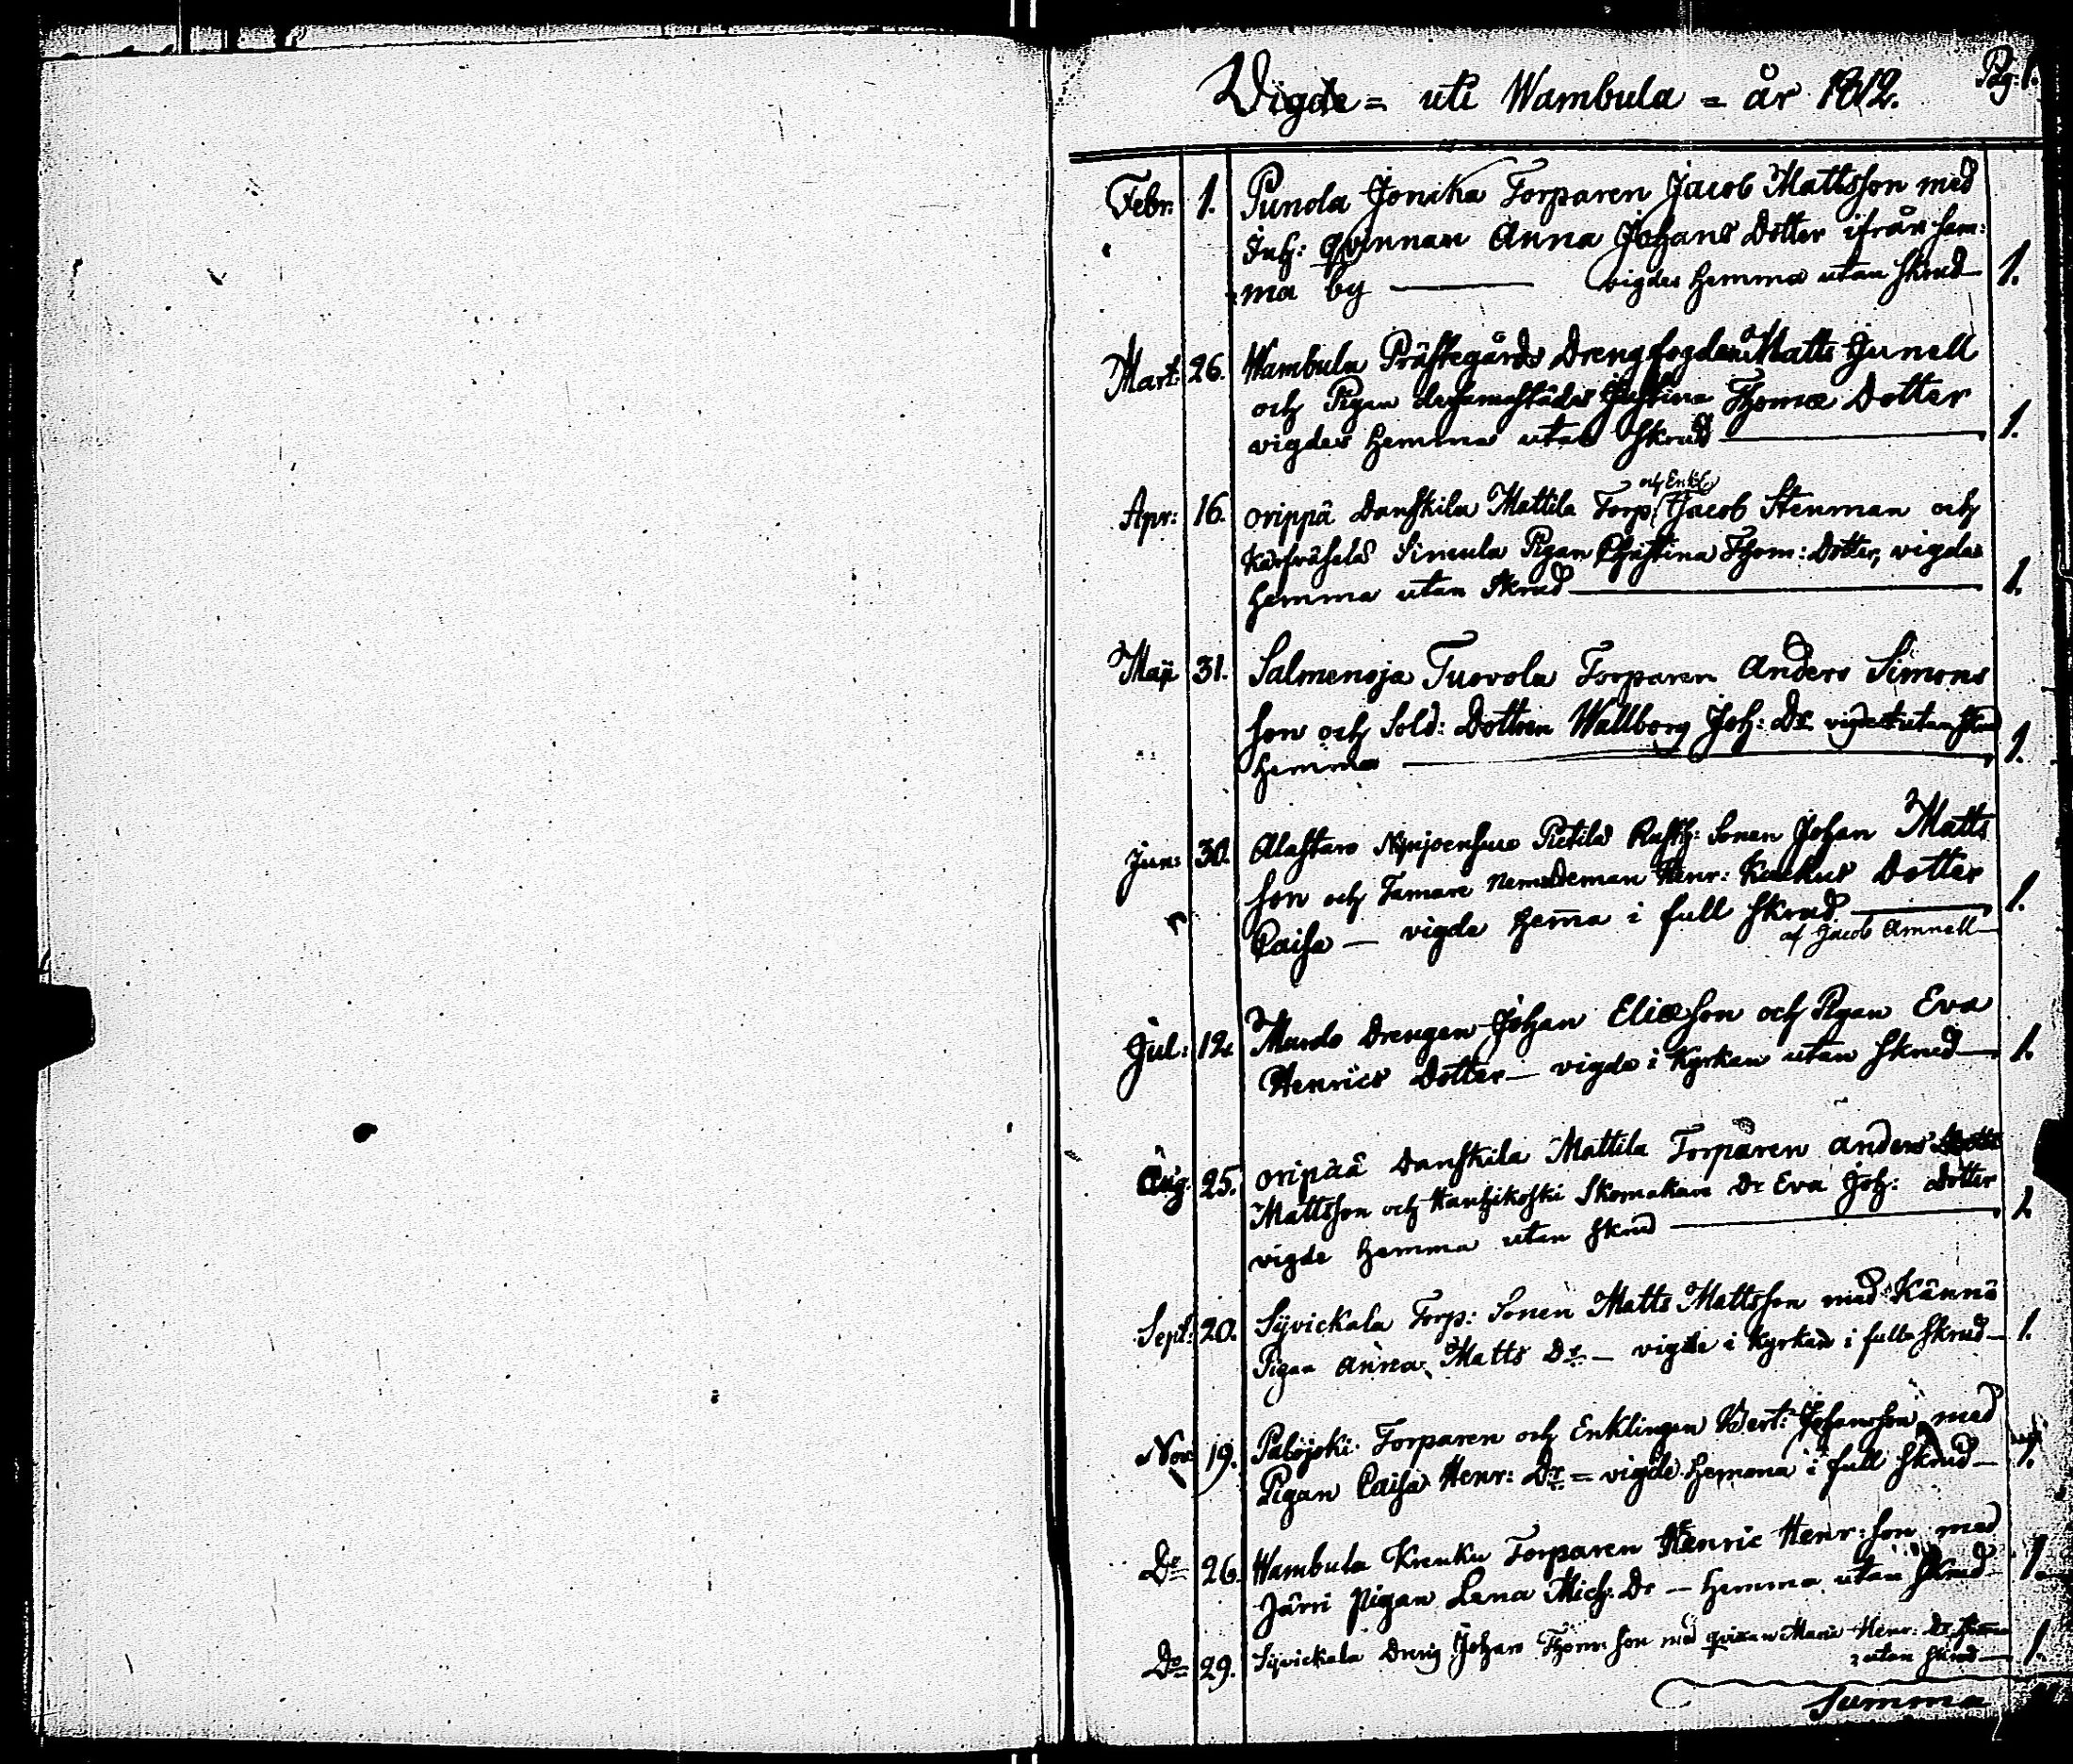 Pag: 1.
Vigde = uti Wambula = år 1812.
Febr: 1. Punola Jonika Torparen Jacob Mattsson med
Inh: qvinnan Anna Johans Dotter ifrån sam:
ma by — vigdes hemma utan skrud 1.
Mart: 26. Wambula Prästegårds Drengfogden Matts Junell
och Pigan dersamastädes Justina Thomæ Dotter
vigdes hemma utan skrud — 1.
och Enkl:
Apr: 16. Orippä Danskila Mattila Torp: Jacob Stenman och
Simula Pigan Christina Thom: Dotter, vigdes
hemma utan skrud — 1.
Maji 31. Salmenoja Tuovola Torparen Anders Simons
son och Sold: Dottren Wallborg Joh: Dr vigde utan skrud
hemma — 1.
Jun: 30. Alastaro Pietilä Rusth: Sonen Johan Matts
son och Tamare Nemdeman Henr: Dotter
Caisa — vigde hem̄a i full skrud — 1.
af Jacob Amnell
Jul: 12. Drengen Johan Eliæson och Pigan Eva
Henrics Dotter — vigde i Kyrkan utan skrud — 1.
Aug: 25. Oripää Danskila Mattila Torparen Anders
Mattsson och Skomakare Dr Eva Joh: Dotter
vigde hemma utan skrud — 1.
Sept: 20. Syvickala Torp: Sonen Matts Mattsson med Kännö
Pigan Anna Matts Dr — vigde i Kyrkan i full skrud — 1.
Nov: 19. Palojoki Torparen och Enklingen Bert: Johansson med
Pigan Caisa Henr: Dr = vigde hemma i full skrud — 1.
Do 26. Wambula Krenku Torparen Henric Henr: son med
Järri pigan Lena Mich: Dr — hemma utan skrud 1.
Do 29. Syvickala Dreng Johan Thom: son med qvinan Maria Henr: Dr
utan skrud — 1.
Summa